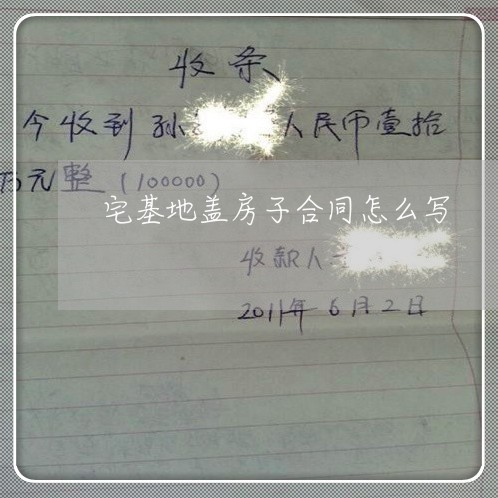 收条
今收到孙 人民币壹拾
万元整（100000）
宅基地盖房子合同怎么写
收款人
2011年6月2日